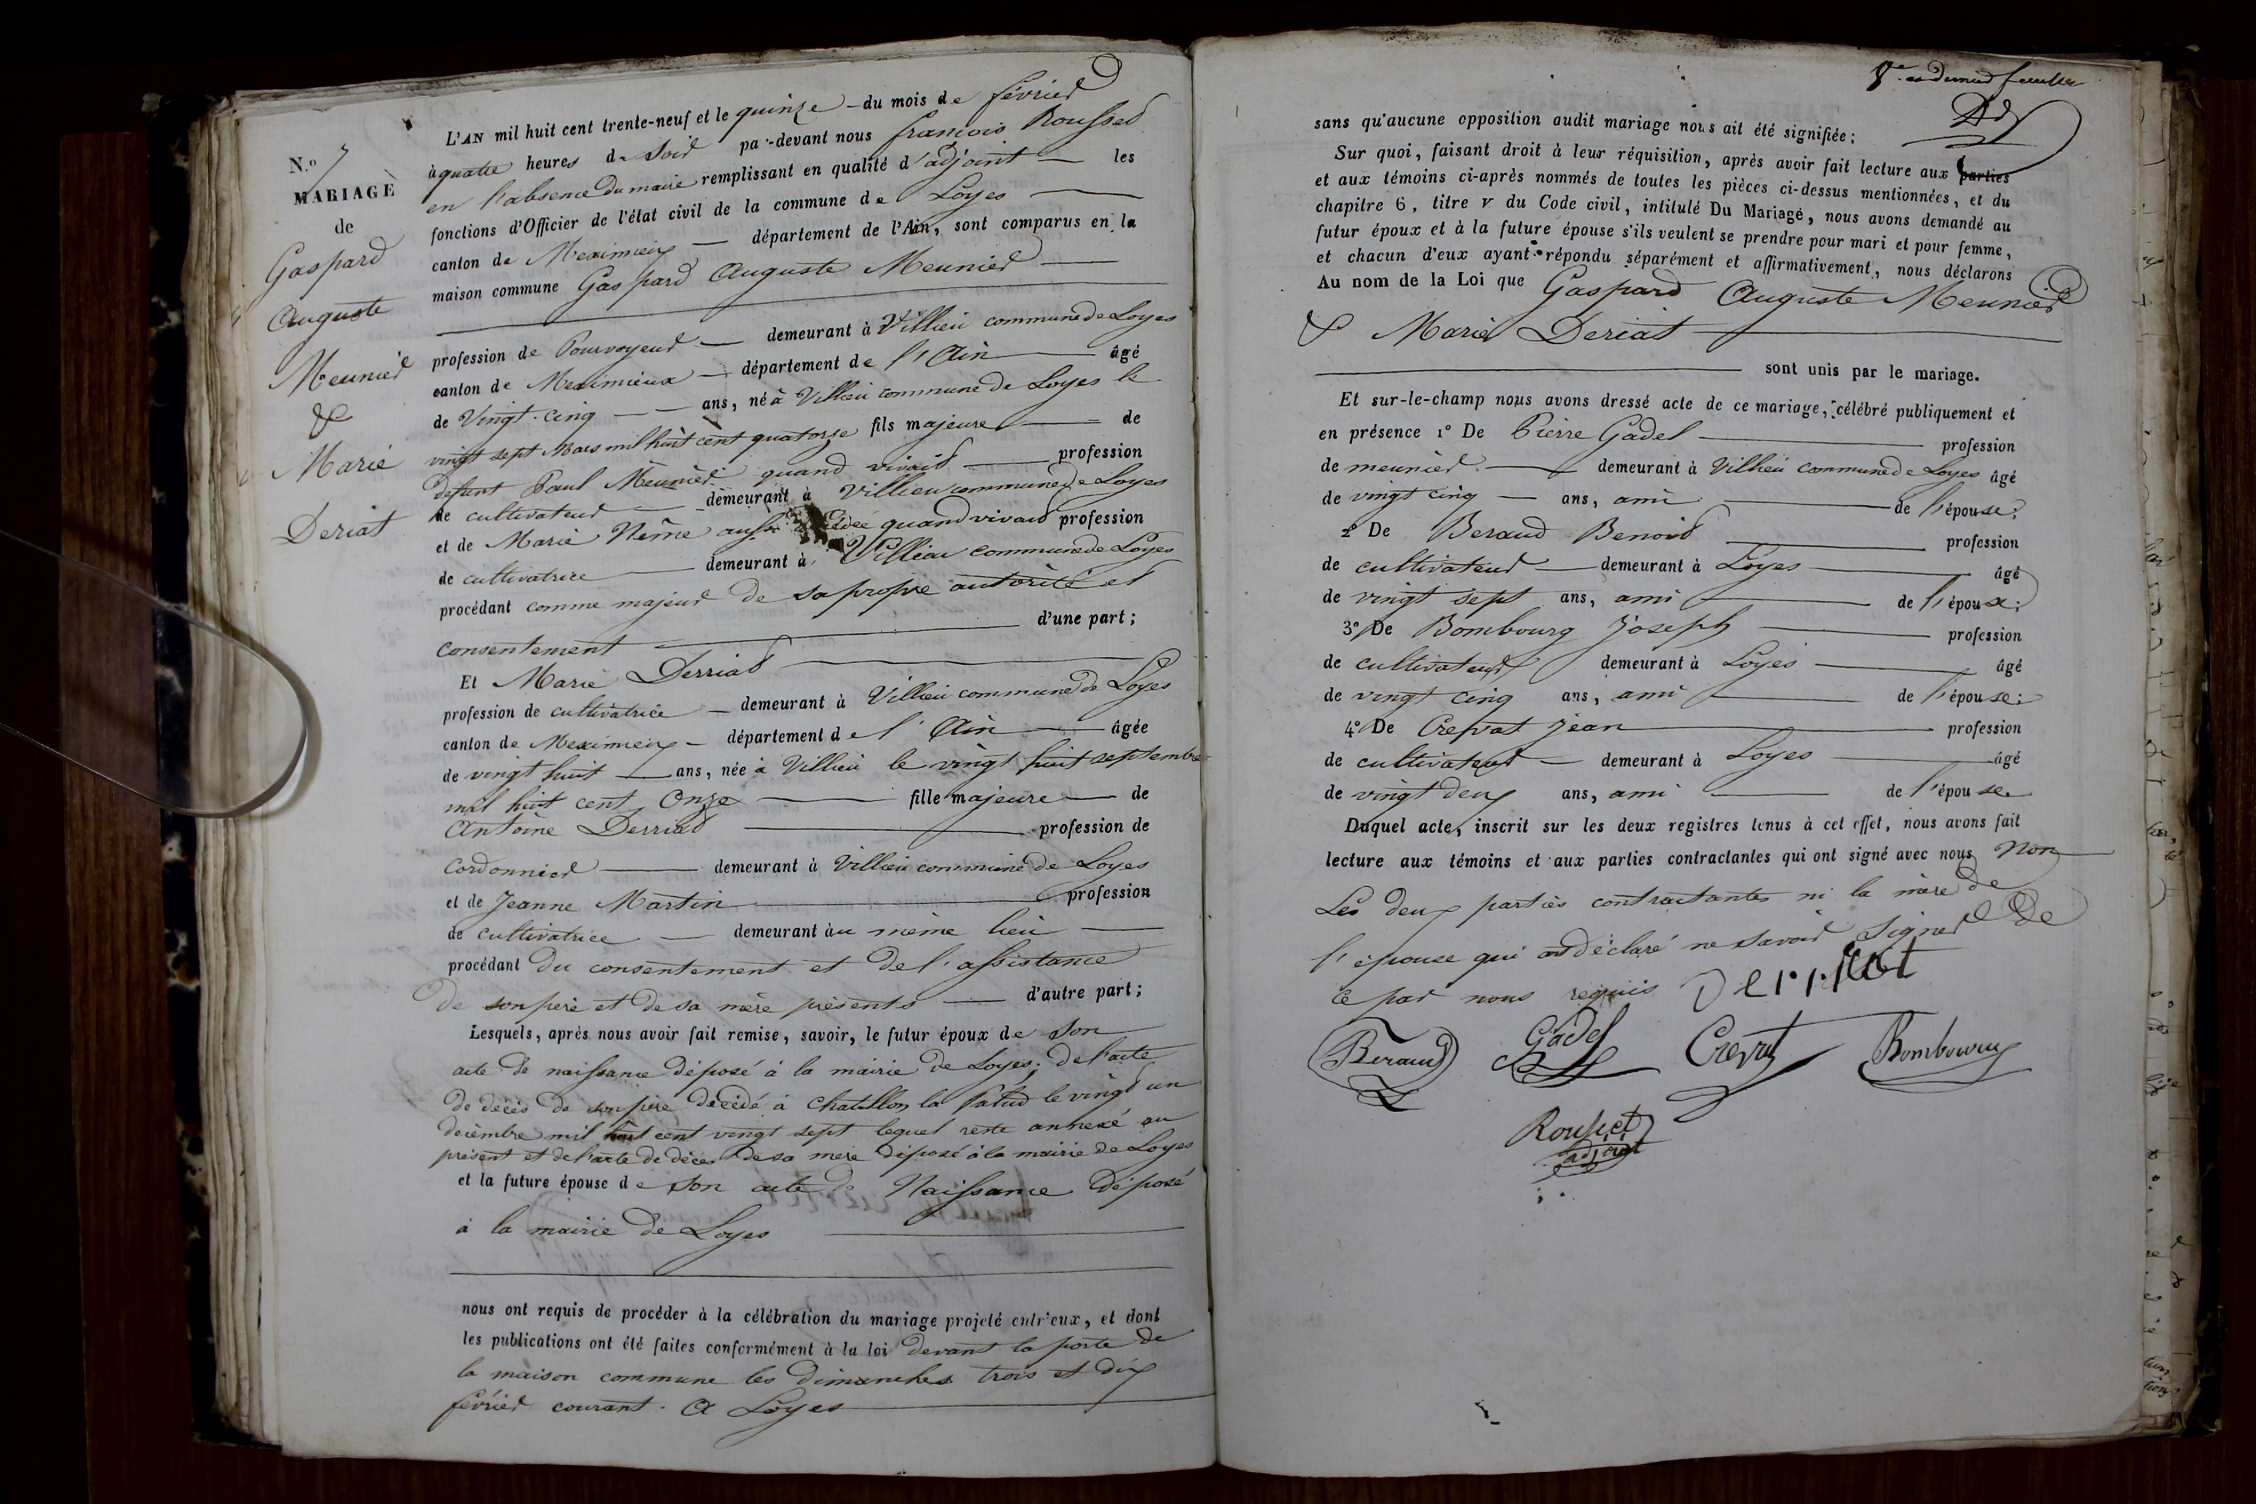 N.o 7
MARIAGE
de
Gaspard
Auguste
Meunier
&
Marie
Deriat
L'AN mil huit cent trente-neuf et le quinze du mois de février
à quatre heures du Soir par-devant nous françois Rousset
en l'absence du maire remplissant en qualité d'adjoint les
fonctions d'Officier de l'état civil de la commune de Loyes
canton de Meximieux département de l'Ain, sont comparus en la
maison commune Gaspard Auguste Meunier
profession de Pourvoyeur demeurant à Villieu commune de Loyes
canton de Meximieux département de l'Ain âgé
de Vingt-cinq ans, né à Villieu commune de Loyes le
vingt sept Mars mil huit cent quatorze fils majeure de
défunt Paul Meunier quand vivait profession
de cultivateur demeurant à Villieu commune de Loyes
et de Marie Nême aussi quand vivait profession
de cultivatrice demeurant à Villieu commune de Loyes
procédant comme majeur de sa propre autorité et
consentement d'une part;
Et Marie Derriat
profession de cultivatrice demeurant à Villieu commune de Loyes
canton de Meximieux département de l'Ain âgée
de vingt huit ans, née à Villieu le vingt huit septembre
mil huit cent Onze fille majeure de
Antoine Derriat profession de
Cordonnier demeurant à Villieu commune de Loyes
et de Jeanne Martin profession
de cultivatrice demeurant au même lieu
procédant du consentement et de l'assistance
de son père et de sa mère présents d'autre part;
Lesquels, après nous avoir fait remise, savoir, le futur époux de son
acte de naissance déposé à la mairie de Loyes; de l'acte
de décès de son père décédé à Chatillon la Palud le vingt un
décembre mil huit cent vingt sept lequel reste annexé au
présent et de l'acte de décès de sa mère déposé à la mairie de Loyes
et la future épouse de son acte de Naissance déposé
à la mairie de Loyes
nous ont requis de procéder à la célébration du mariage projeté entr'eux, et dont
les publications ont été faites conformément à la loi devant la porte de
la maison commune les dimanches trois et dix
février courant. A Loyes
8e et dernier feuillet
sans qu'aucune opposition audit mariage nous ait été signifiée;
Sur quoi, faisant droit à leur réquisition, après avoir fait lecture aux parties
et aux témoins ci-après nommés de toutes les pièces ci-dessus mentionnées, et du
chapitre 6, titre V du Code civil, intitulé Du Mariage, nous avons demandé au
futur époux et à la future épouse s'ils veulent se prendre pour mari et pour femme,
et chacun d'eux ayant répondu séparément et affirmativement, nous déclarons
Au nom de la Loi que Gaspard Auguste Meunier
& Marie Deriat
sont unis par le mariage.
Et sur-le-champ nous avons dressé acte de ce mariage, célébré publiquement et
en présence 1o De Pierre Gadel profession
de meunier demeurant à Villieu commune de Loyes âgé
de vingt cinq ans, ami de l'épouse;
2o De Beraud Benoit profession
de cultivateur demeurant à Loyes âgé
de vingt sept ans, ami de l'épouse;
3o De Bombourg Joseph profession
de cultivateur demeurant à Loyes âgé
de vingt cinq ans, ami de l'épouse;
4o De Crepat Jean profession
de cultivateur demeurant à Loyes âgé
de vingt deux ans, ami de l'épouse.
Duquel acte, inscrit sur les deux registres tenus à cet effet, nous avons fait
lecture aux témoins et aux parties contractantes qui ont signé avec nous Non
Les deux parties contractantes ni la mère de
l'épouse qui ont déclaré ne savoir signer de
ce par nous requis Derriat
Beraud Gadel Crepat Bombourg
Rousset
adjoint